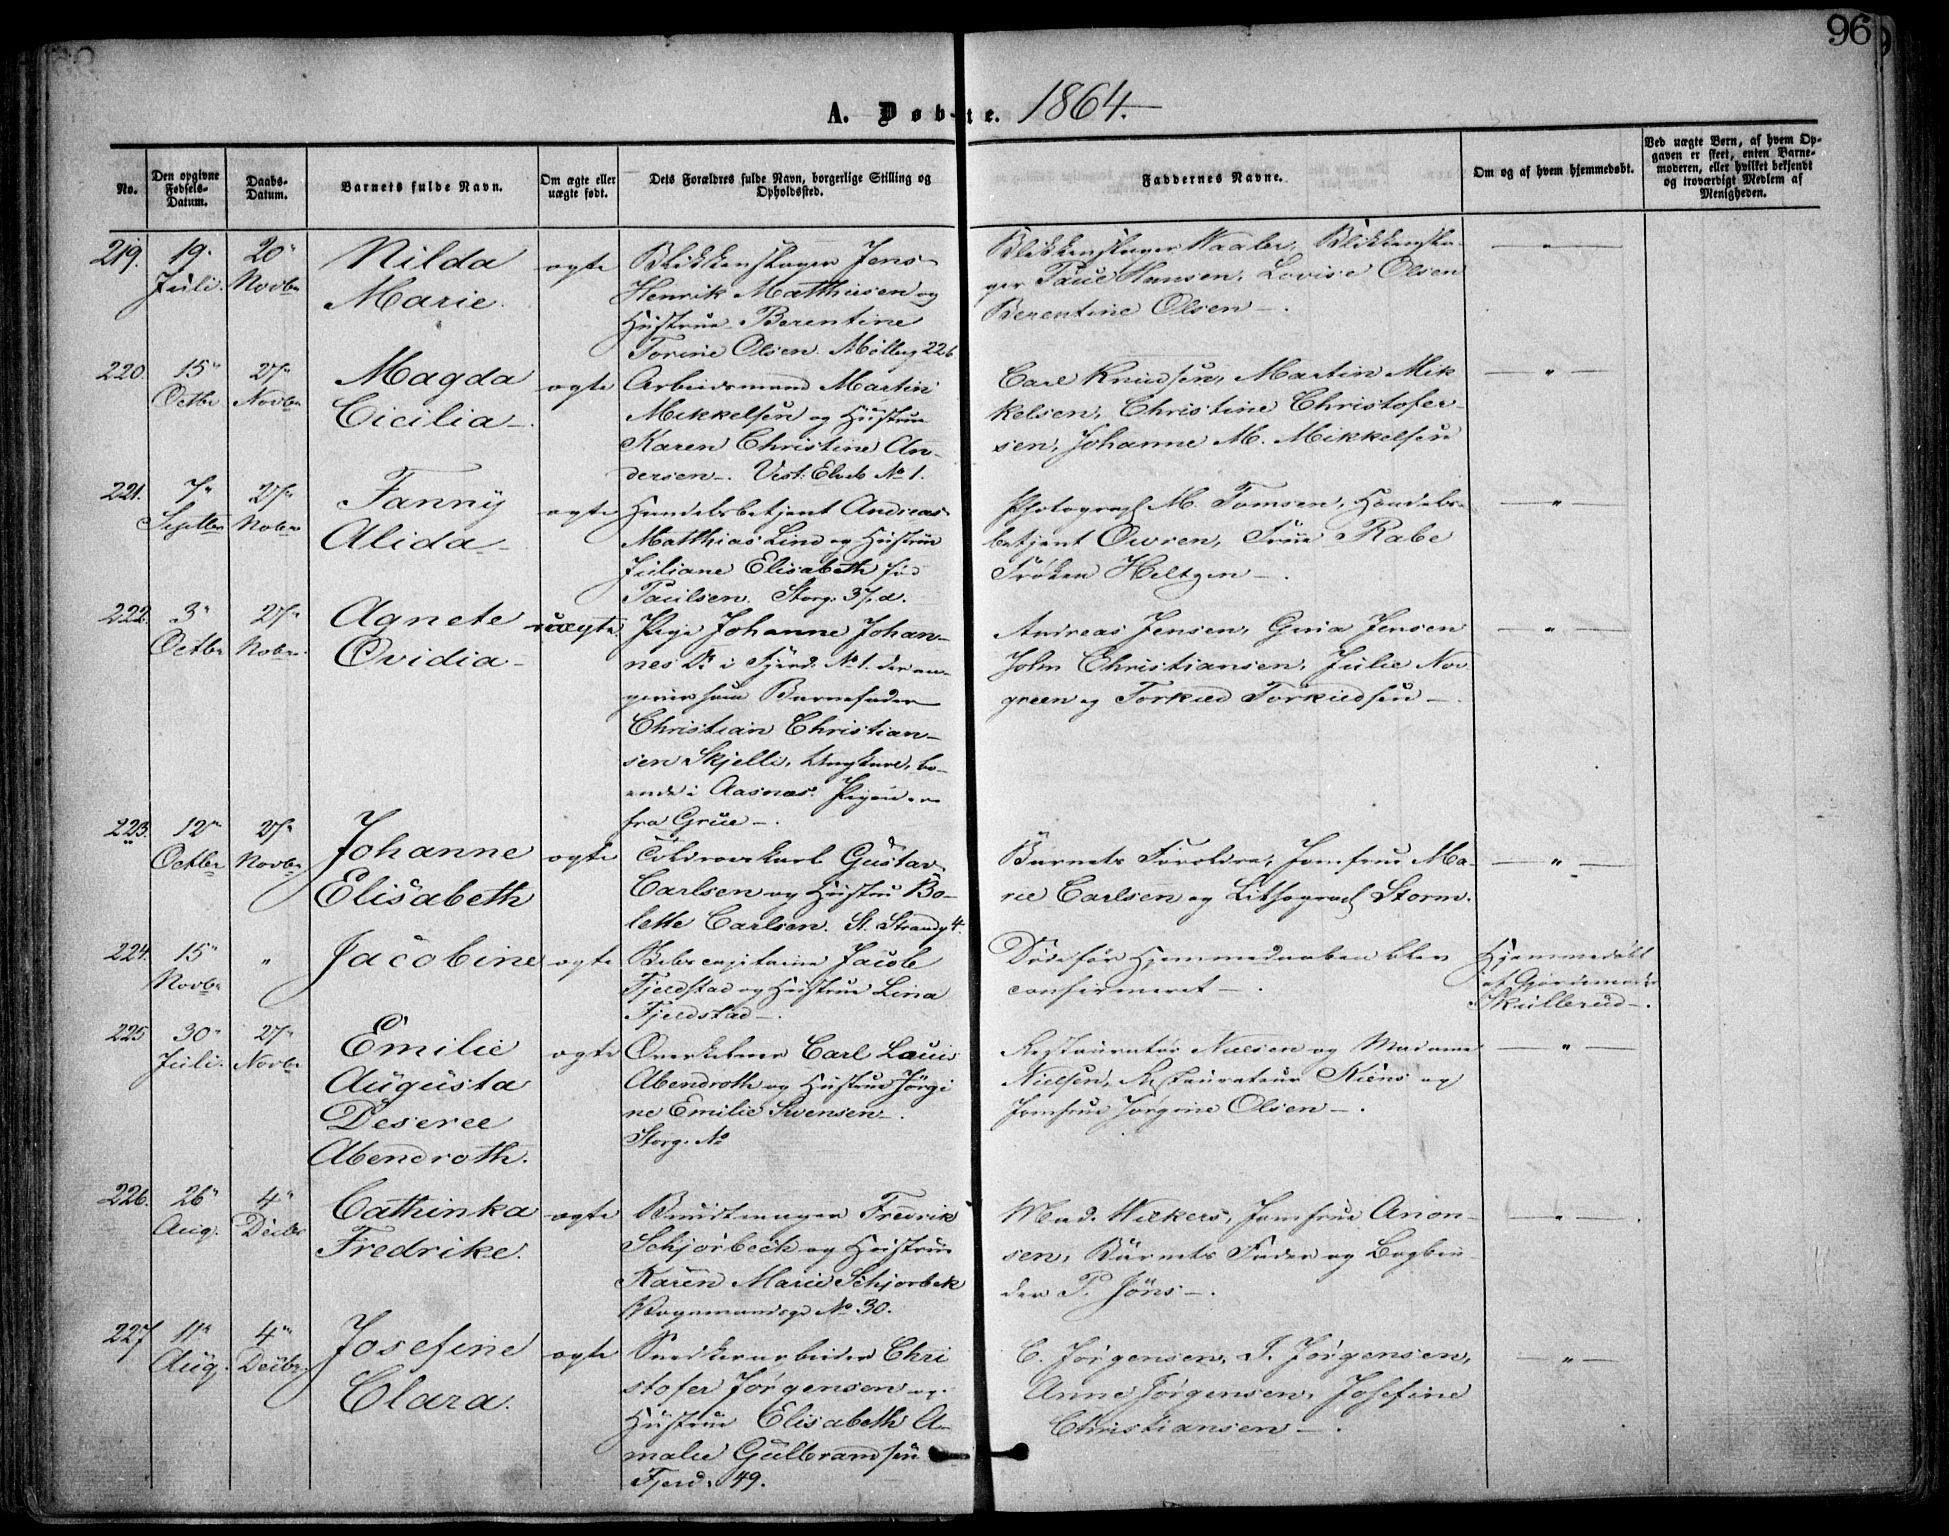 96
A. Døbte. 1864.
No.
Den opgivne Fødsels-Datum.
Daabs-Datum.
Barnets fulde Navn.
Om ægte eller uægte født.
Dets Forældres fulde Navn, borgerlige Stilling og Opholdssted.
Faddernes Navne.
Om og af hvem hjemmedøbt.
Ved uægte Børn, af hvem Opgaven er skeet, enten Barnemoderen, eller hvilket bekjendt og troværdigt Medlem af Menigheden.
219. 19. Juli. 20" Novbr
Nilda
Marie.
ægte
Blikkenslager Jens
Henrik Matthiesen og
Hustrue Berentine
Torine Olsen. Møllerg 226
Blikkenslager Waaler, Blikkensla-
ger Paul Hansen, Lovise Olsen
Berentine Olsen —.
— " —
220. 15" Octbr 27" Novbr
Magda
Cicilia —.
ægte
Arbeidsmand Martin
Mikkelsen og Hustrue
Karen Christine An-
dersen —. Vest: Elveb No 1.
Carl Knudsen, Martin Mik
kelsen, Christine Christofer-
sen, Johanne M. Mikkelsen
— " —
221. 7" Septbr 27" Nobr
Fanny
Alida —
ægte
Handelsbetjent Andreas
Matthias Lind og Hustrue
Juliane Elisabeth fød
Paulsen. Storg: 37. d.
Photograph M. Tomsen, Handels-
betjent Owren, Frue Rabe
Frøken Heltzen —.
— " —
222. 3" Octbr 27" Nobr.
Agnete
Ovidia —
uægte
Pige Johanne Johan-
nes Dr i Fjerd. No 1. der an-
giver som Barnefader
Christian Christian-
sen Skjelli, Ungkarl, bo-
ende i Aasnæs. Pigen er
fra Grue —.
Andreas Jensen, Gina Jensen
John Christiansen, Julie Nor
green og Torkild Torkildsen —.
— " —
223. 12" Octbr 27" Novbr
Johanne
Elisabeth
ægte
Gustav
Carlsen og Hustru Bo-
lette Carlsen. St. Strandg 4.
Barnets Forældre, Jomfrue Ma-
rie Carlsen og Lithograph Storm.
— " —
224. 15" Novbr "
Jacobine
ægte
Jacob
Fjeldstad og Hustrue Lina
Fjeldstad —.
Døde før Hjemmedaaben blev
confirmeret —.
Hjemmedøbt
af Gjordemoder
Skullerud —.
225 30" Juli. 27" Novbr
Emilie
Augusta
Deseree
Abendroth.
ægte
Overkelner Carl Louis
Abendroth og Hustrue Jørgi
ne Emilie Svensen —.
Storg. No
Restauratør Nielsen og Madame
Nielsen, Restaurateur Kiens og
Jomfrue Jørgine Olsen —.
— " —
226. 26" Aug. 4" Decbr
Cathinka
Fredrike.
ægte
Buntmager Fredrik
Schjørbeck og Hustrue
Karen Marie Schjørbek
Vognmandsg No 30.
Mad. Wilkers, Jomfrue Anon-
sen, Barnets Fader og Bogbin-
der P. Jöns —.
— " —.
227 11" Aug. 4" Decbr.
Josefine
Clara.
ægte
Snedkerarbeider Chri
stofer Jørgensen og
Hustrue Elisabeth A-
malie Gulbrandsen
Fjerd. 49.
C. Jørgensen, I. Jørgensen,
Anne Jørgensen, Josefine
Christiansen —.
— " —